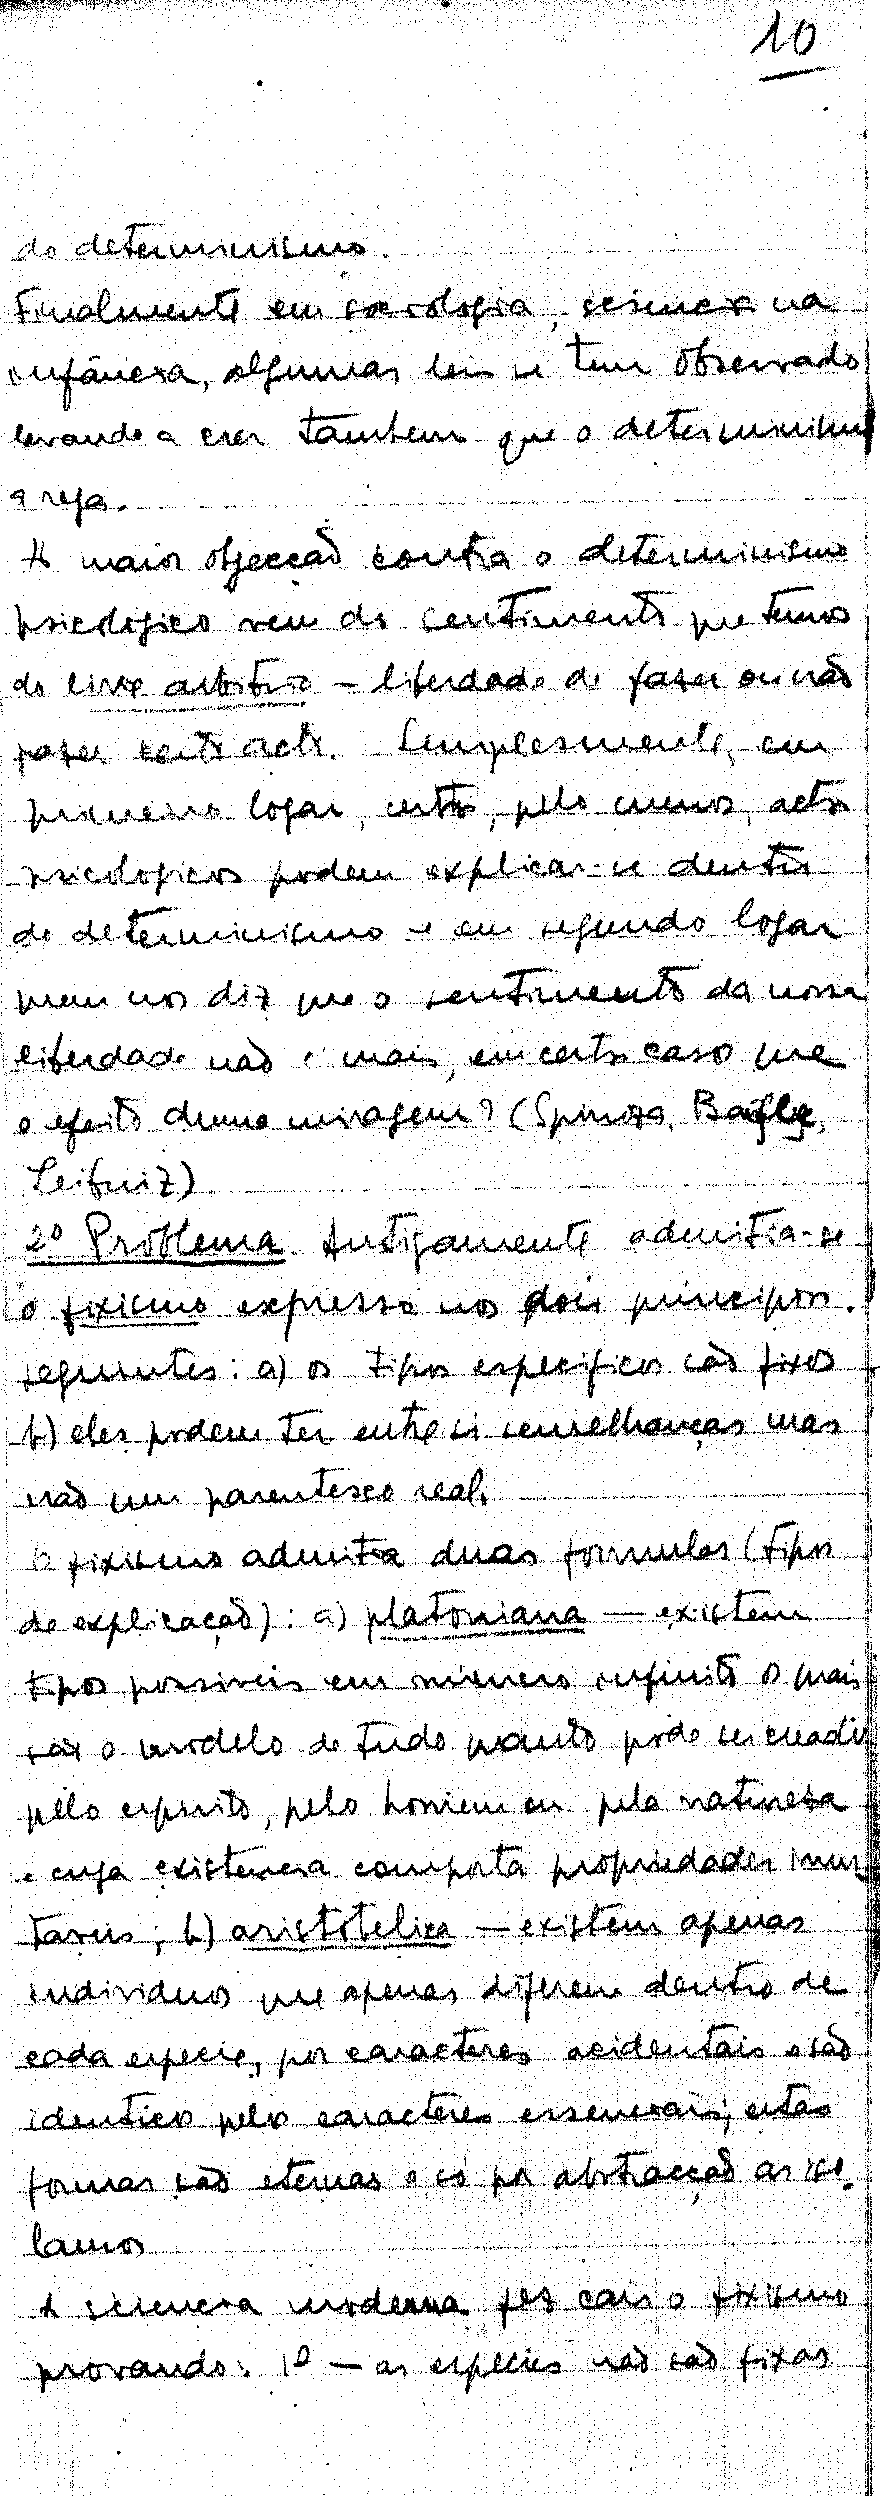 10
do determinismo.
Finalmente em sociologia, sciencia na
infância, algumas leis se tem observado
levando a crer tambem que o determinismo
a reja.
A maior objecção contra o determinismo
psicologico vem do sentimento que temos
do livre arbitrio – liberdade de fazer ou não
fazer certo acto. Simplesmente, em
primeiro logar, certos, pelo menos, actos
psicologicos podem explicar-se dentro
do determinismo e em segundo logar
quem nos diz que o sentimento da nossa
liberdade não é mais, em certo caso que
o efeito duma miragem? (Spinoza, Bayle,
Leibniz)
2º Problema Antigamente admitia-se
o fixismo expresso nos dois principios
seguintes: a) os tipos especificos são fixos
b) eles podem ter entre si semelhanças mas
não um parentesco real.
O fixismo admitia duas formulas (tipos
de explicação): a) platoniana — existem
tipos possiveis em número infinito o mais
são o modelo de tudo quanto pode ser creado
pelo espirito, pelo homem ou pela natureza
e cuja existencia comporta propriedades imu-
taveis; b) aristotelica — existem apenas
individuos que apenas diferem dentro de
cada especie, por caracteres acidentais e são
identicos pelos caracteres essenciais; estas
formas são eternas e só por abstracção as iso-
lamos
A sciencia moderna fez cair o fixismo
provando: 1º — as especies não são fixas